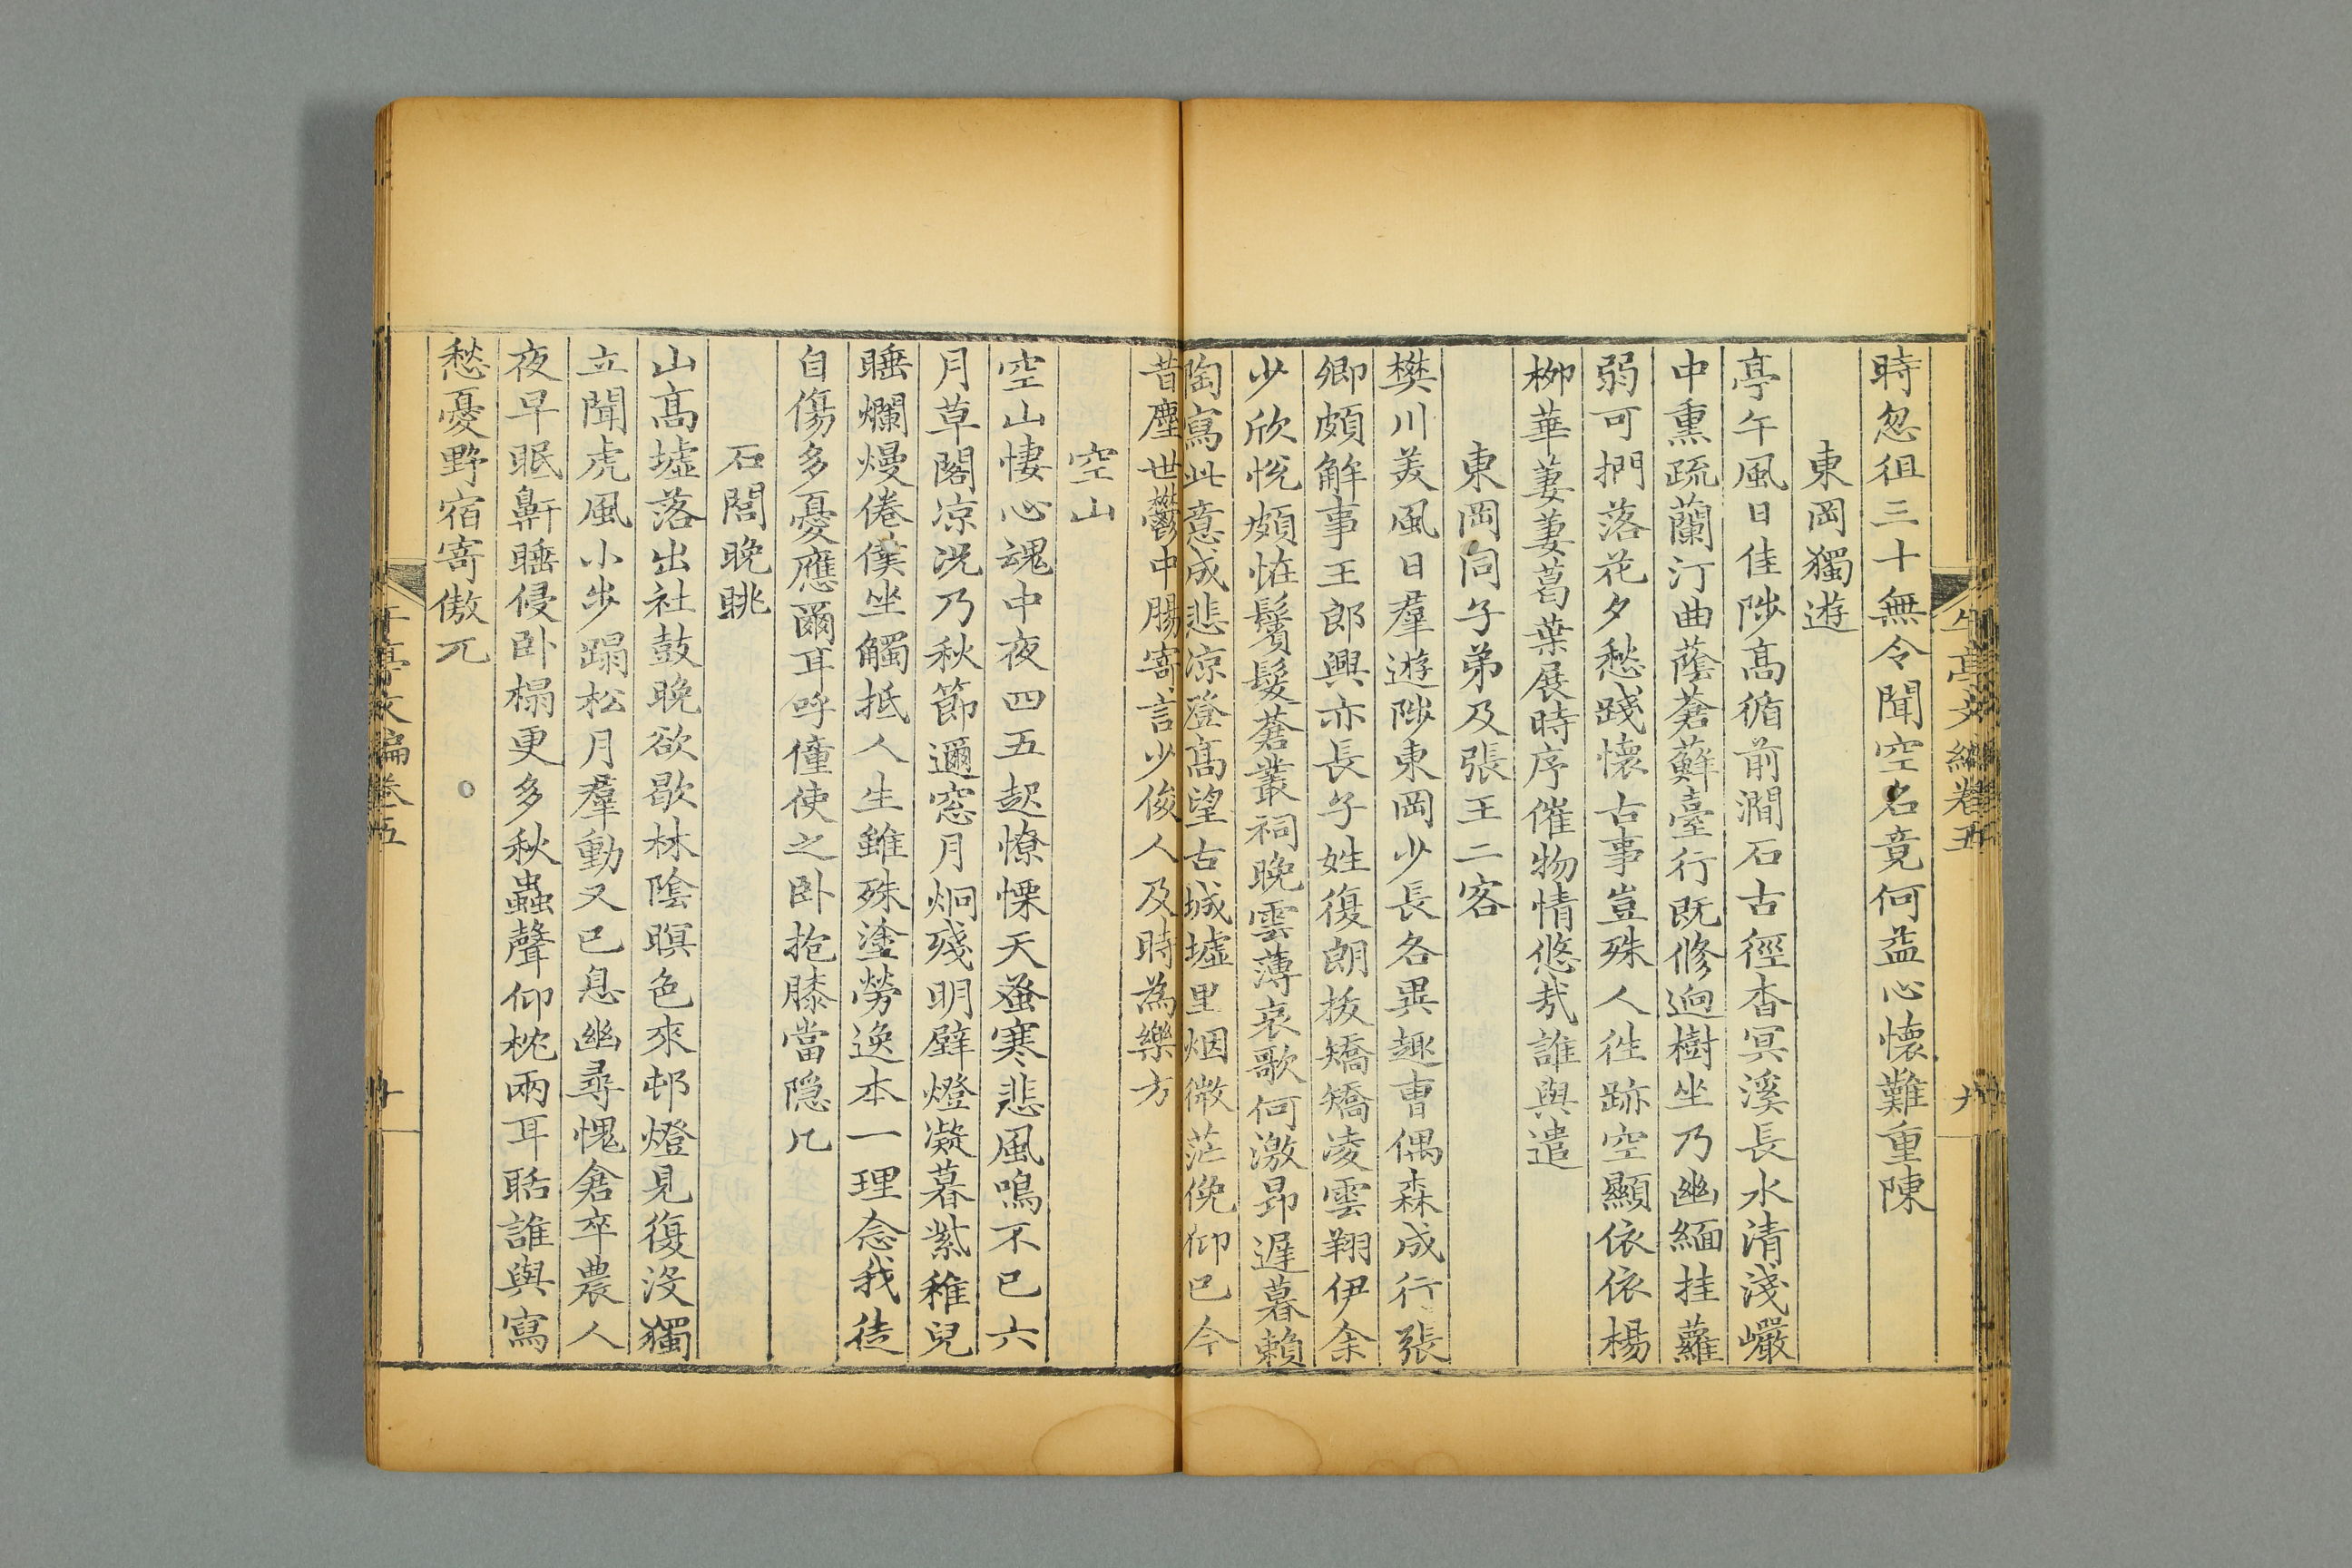 午亭文編卷五
九
時忽徂三十無令聞空名竟何益心懷難重陳
東岡獨遊
亭午風日佳陟高循前澗石古徑杳冥溪長水清淺巖
中熏疏蘭汀曲蔭蒼蘚臺行既修迥樹坐乃幽緬挂蘿
弱可捫落花夕愁踐懷古事豈殊人徃跡空顯依依楊
栁華萋萋葛葉展時序催物情悠哉誰與遣
東岡同子弟及張王二客
樊川美風日羣遊陟東岡少長各異趣曹偶森成行張
卿頗解事王郎興亦長子姓復朗拔矯矯凌雲翔伊余
少欣恱頗恠鬢髮蒼叢祠晚雲薄哀歌何激昻遲暮賴
陶寫此意成悲凉登高望古城墟里烟微茫俛仰已今
昔塵世鬱中腸寄言少俊人及時為樂方
空山
空山悽心魂中夜四五起憭慄天蛩寒悲風鳴不已六
月草閣凉况乃秋節邇窓月炯殘明壁燈凝暮紫稚兒
睡爛熳倦僕坐觸抵人生雖殊塗勞逸本一理念我徒
自傷多憂應爾耳呼僮使之卧抱膝當隱几
石閭晚眺
山高墟落出社鼓晚欲歇林陰暝色來邨燈見復沒獨
立聞虎風小步蹋松月羣動又已息幽尋愧倉卒農人
夜早眠鼾睡侵卧榻更多秋蟲聲仰枕兩耳聒誰與寫
愁憂野宿寄傲兀
午亭文編卷五
十